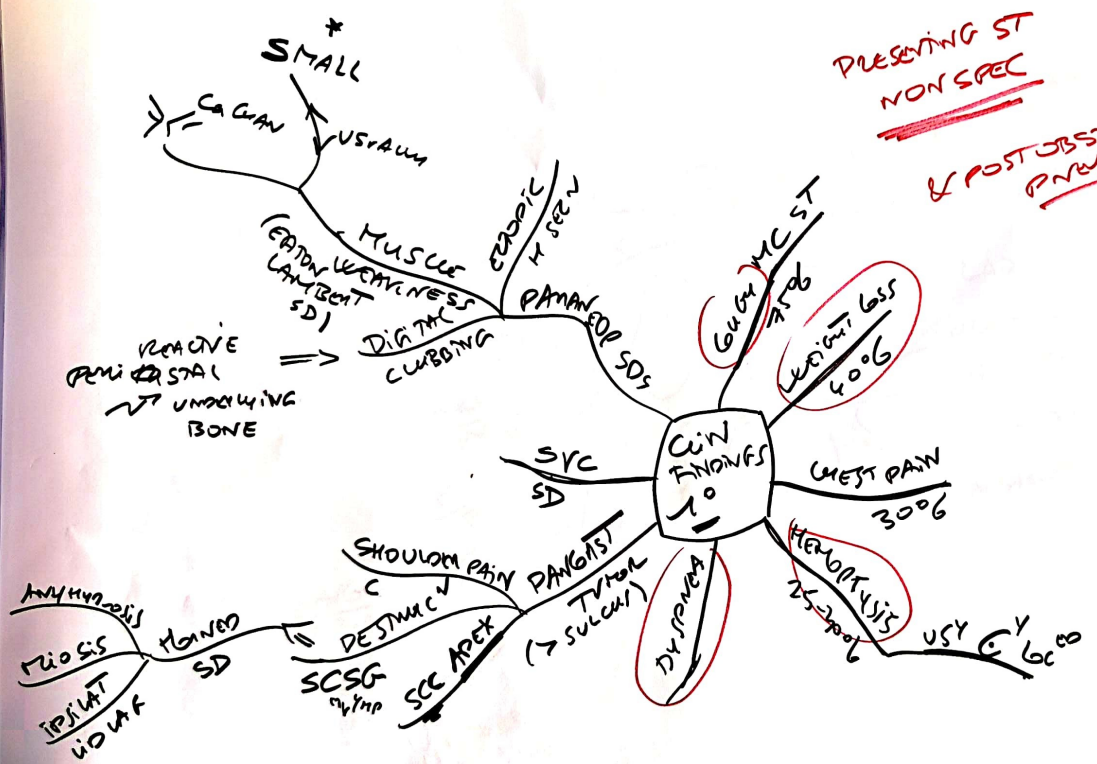 *
SMALL
USUALLY
MUSCLE
WEAKNESS
(EATON
LAMBERT
SD)
ECTOPIC
H SECN
DIGITAL
CLUBBING
REACTIVE
UNDERLYING
BONE
SDS
PRESENTING ST
NONSPEC
& POST OBS
PNEU
COUGH MC ST
75%
WEIGHT LOSS
40%
CLIN
FINDINGS
1°
CHEST PAIN
30%
HEMOPTYSIS
25-30%
USY
DYSPNEA
SVC
SD
PANCOAST
TUMOR
(> SULCUS)
SHOULDER PAIN
C
DESTRUC
SCSG
SCC APEX
HORNER
SD
ANHYDROSIS
MIOSIS
IPSILAT
LID LAG